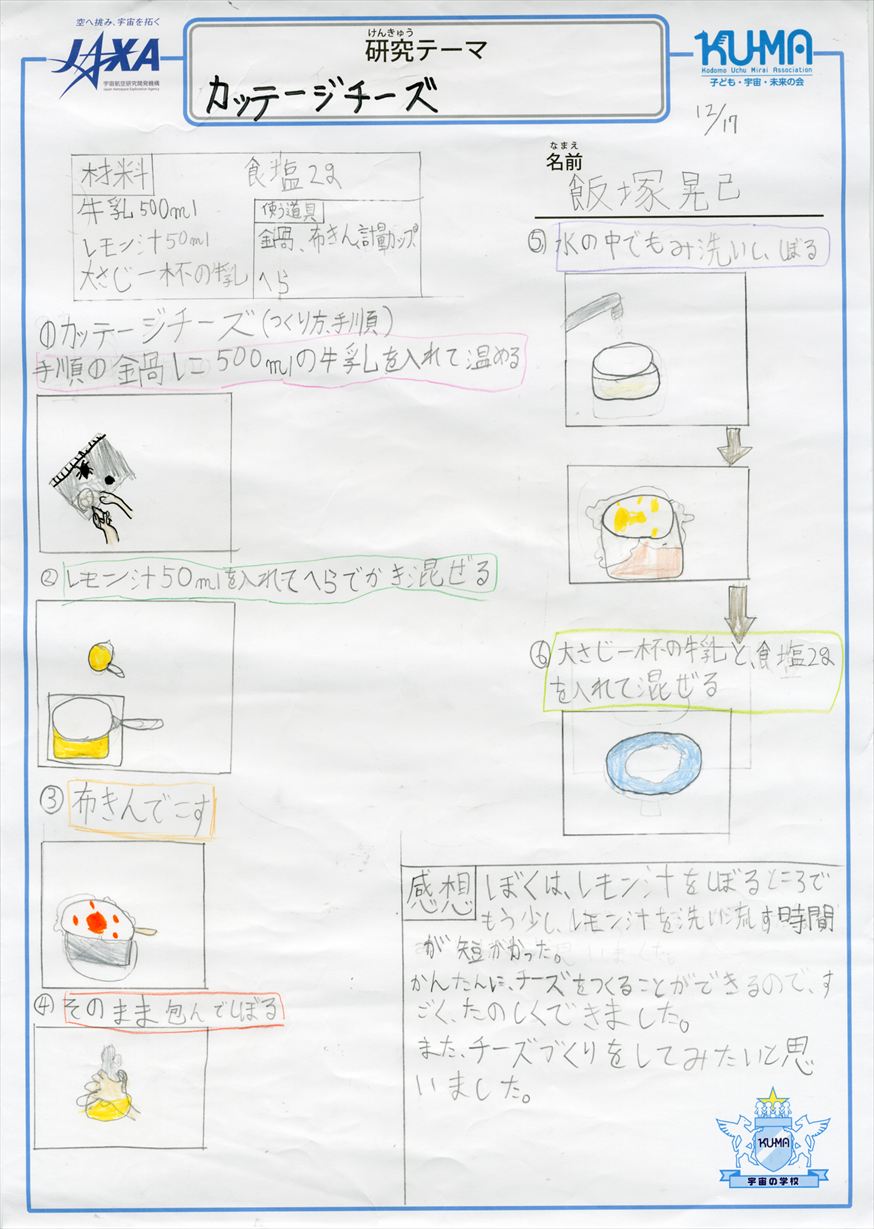 空へ挑み、宇宙を拓く
JAXA
宇宙航空研究開発機構
Japan Aerospace Exploration Agency
けんきゅう
研究テーマ
カッテージチーズ
KU-MA
Kodomo Uchu Mirai Association
子ども・宇宙・未来の会
12/17
なまえ
名前
飯塚晃己
材料
食塩2g
牛乳500ml
レモン汁50ml
大さじ一杯の牛乳
使う道具
鍋、布きん計量カップ
へら
①カッテージチーズ(つくり方、手順)
手順①鍋に500mlの牛乳を入れて温める
②レモン汁50mlを入れてへらでかき混ぜる
③布きんでこす
④そのまま包んでしぼる
⑤水の中でもみ洗いし、しぼる
⑥大さじ一杯の牛乳と、食塩2g
を入れて混ぜる
感想
ぼくは、レモン汁をしぼるところで
もう少し、レモン汁を洗い流す時間
が短かかった。
かんたんに、チーズをつくることができるので、す
ごく、たのしくできました。
また、チーズづくりをしてみたいと思
いました。
KU-MA
宇宙の学校